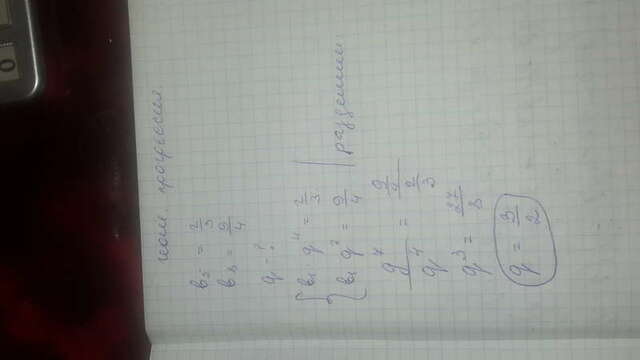 геом прогрессия
b₅ = 2/3
b₈ = 9/4
q - ?
{ b₁ q⁴ = 2/3
{ b₁ q⁷ = 9/4 | разделим
q⁷/q⁴ = (9/4)/(2/3)
q³ = 27/8
q = 3/2
0